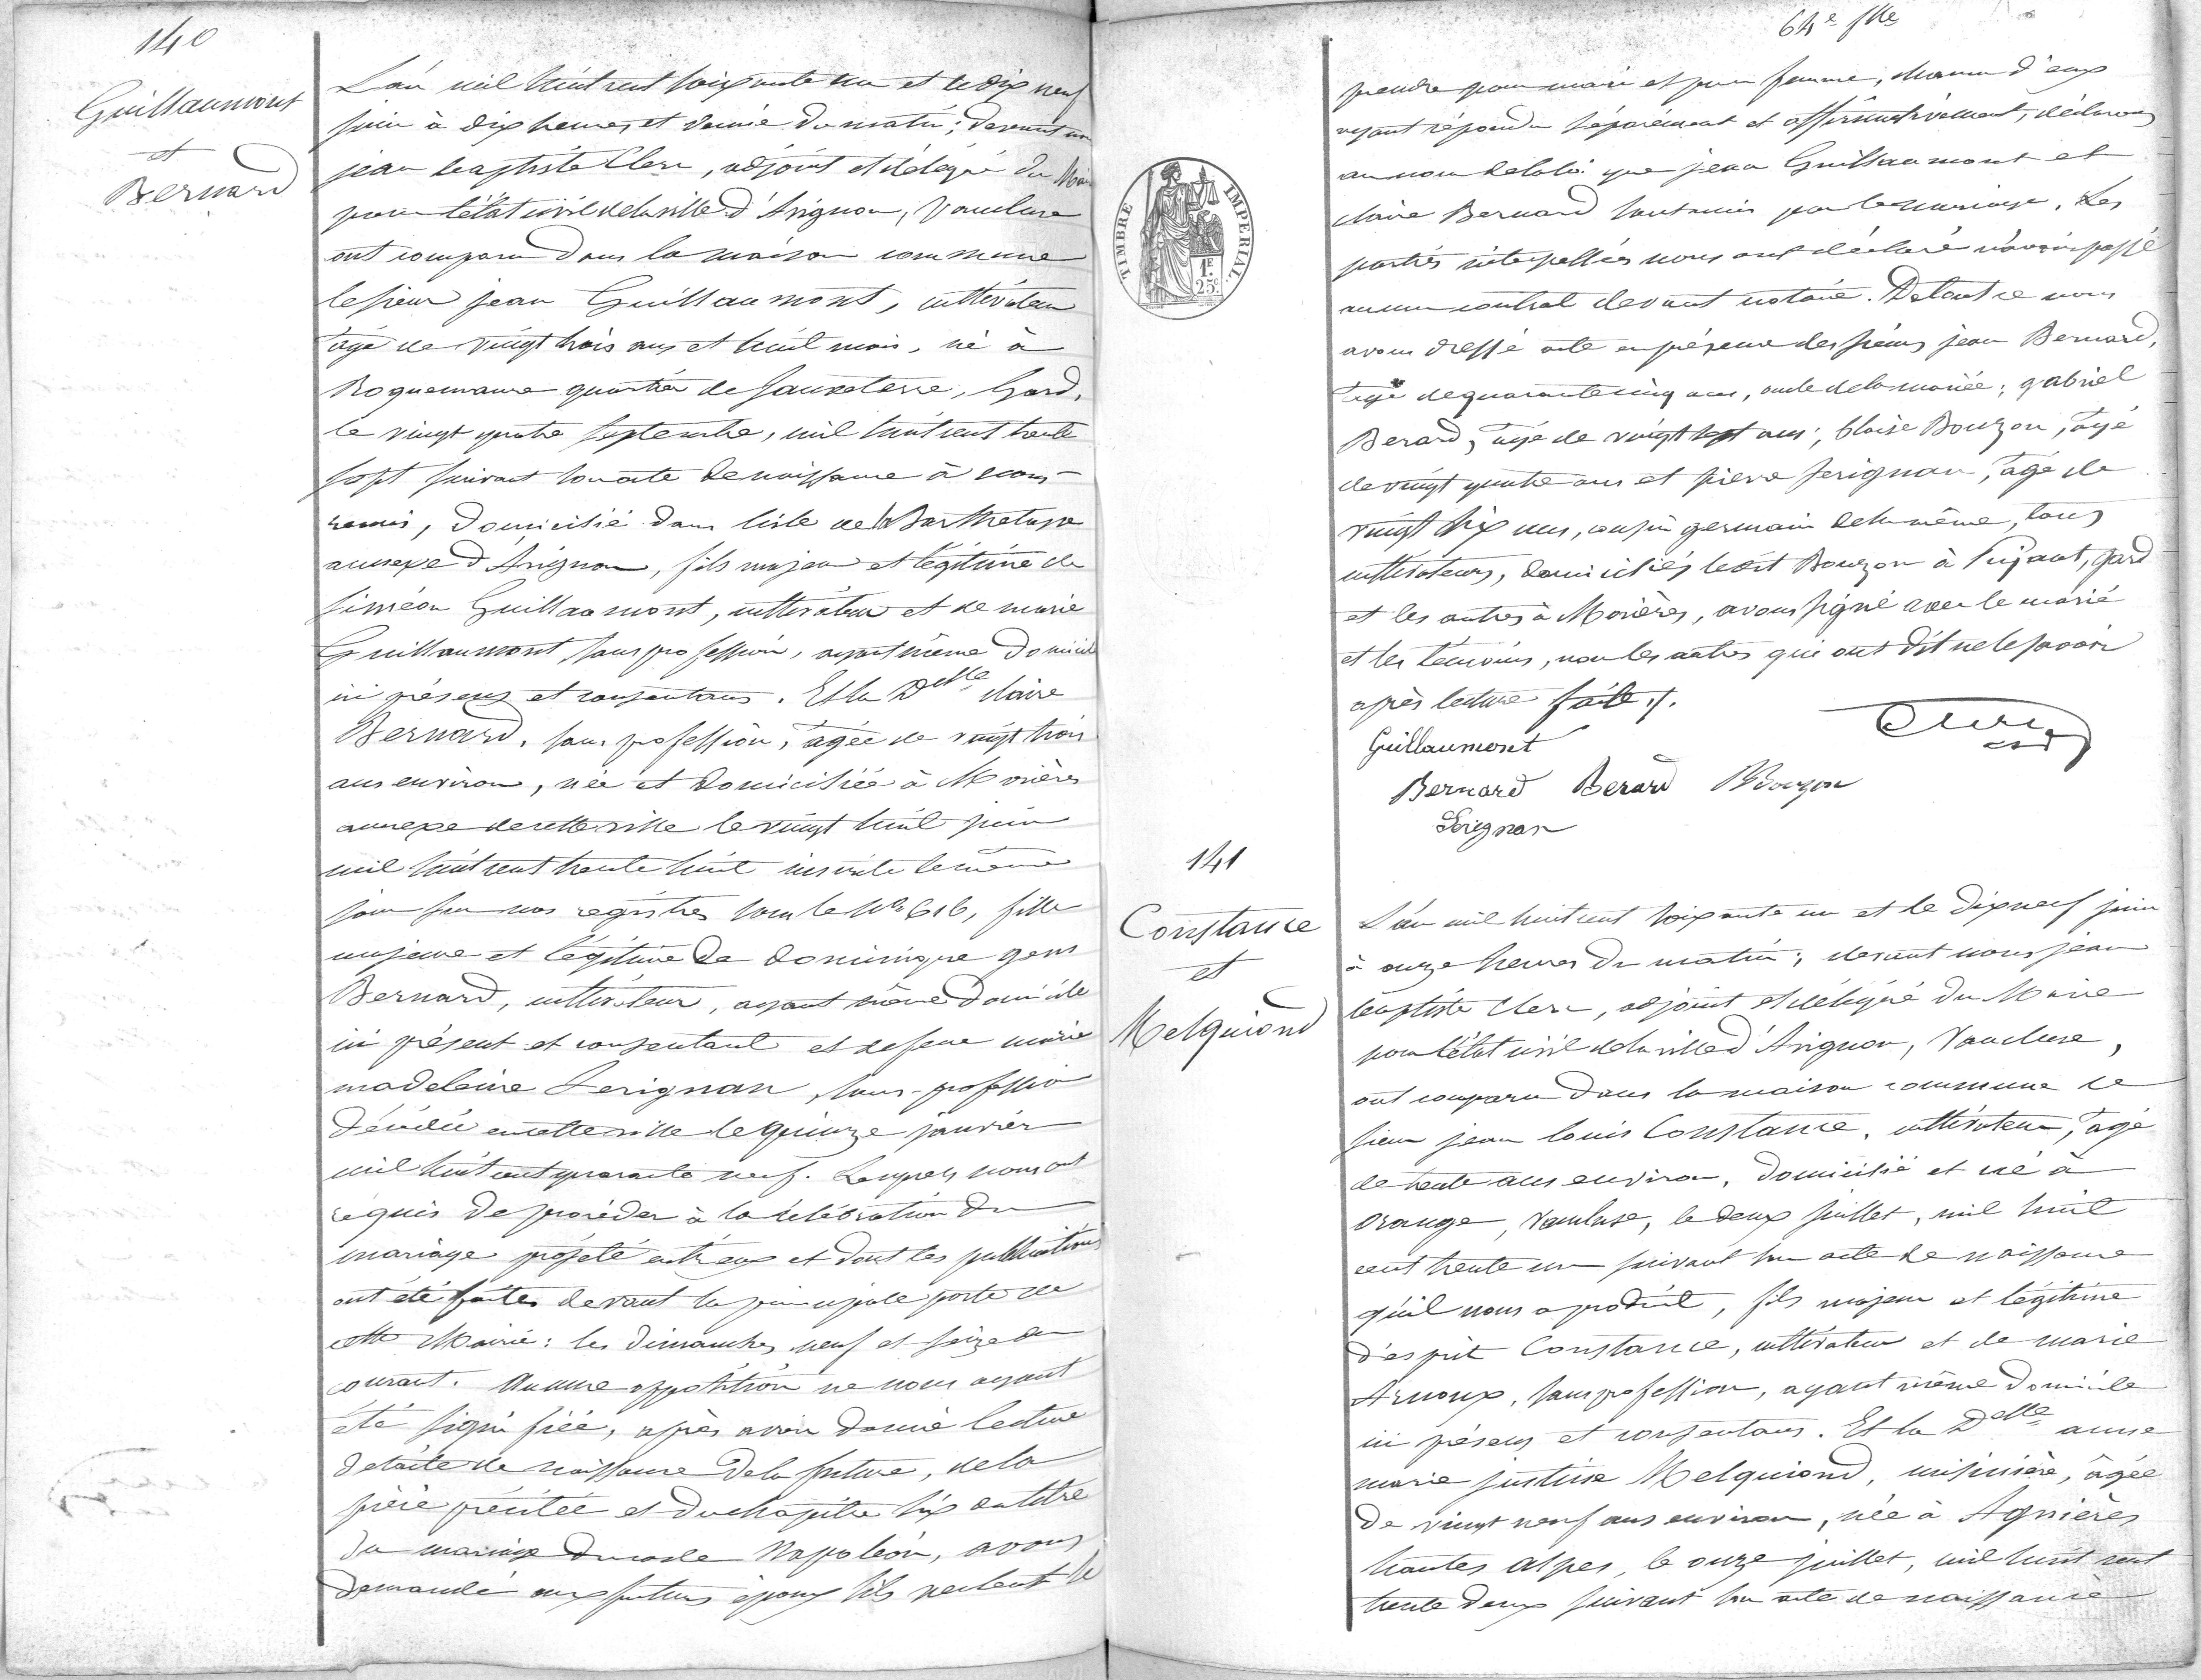 140
Guillaumont
et
Bernard
L'an mil huit cent soixante un et le dix neuf
juin à dix heures et demie du matin; devant nous
jean baptiste Clerc, adjoint et délégué du Maire
pour l'état civil de la ville d'Avignon, Vaucluse
ont comparu dans la maison commune
le sieur jean Guillaumont, cultivateur
âgé de vingt trois ans et huit mois, né à
Roquemaure quartier de Sauveterre, Gard,
le vingt quatre septembre, mil huit cent trente
sept suivant son acte de naissance à nous
remis, domicilié dans l'isle de la Barthelasse
annexe d'Avignon, fils majeur et légitime de
siméon Guillaumont, cultivateur et de marie
Guillaumont, sans profession, ayant même domicile
ici présens et consentans. Et la Delle claire
Bernard, sans profession, âgée de vingt trois
ans environ, née et domiciliée à Morières
annexe de cette ville le vingt huit juin
mil huit cent trente huit inscrite le même
jour sur nos registres sous le No 616, fille
majeure et légitime de dominique gens
Bernard, cultivateur, ayant même domicile
ici présent et consentant et de feue marie
madeleine Serignan, sans profession
décédée en cette ville le quinze janvier
mil huit cent quarante neuf. Lesquels nous ont
requis de procéder à la célébration du
mariage projeté entr'eux et dont les publications
ont été faites devant la principale porte de
cette Mairie: les dimanches neuf et seize du
courant. Aucune opposition ne nous ayant
été signifiée, après avoir donné lecture
de l'acte de naissance de la future, de la
pièce précitée et du chapitre six du titre
du mariage du code Napoléon, avons
demandé aux futurs époux s'ils veulent se
64e flle
TIMBRE IMPERIAL
1F.
25c.
prendre pour mari et pour femme, chacun d'eux
ayant répondu séparément et affirmativement, déclarons
au nom de la loi que jean Guillaumont et
claire Bernard sont unis par le mariage. Les
parties interpellées nous ont déclaré n'avoir passé
aucun contrat devant notaire. De tout ce nous
avons dressé acte en présence des sieurs jean Bernard,
âgé de quarante cinq ans, oncle de la mariée; gabriel
Berard, âgé de vingt sept ans; blaise Bouzon, âgé
de vingt quatre ans et pierre serignan, âgé de
vingt six ans, cousin germain de la même, tous
cultivateurs, domiciliés ledit Bouzon à Pujaut, gard
et les autres à Morières, avons signé avec le marié
et les témoins, non les autres qui ont dit ne le savoir
après lecture faite ./.
Guillaumont
Clerc
adj
Bernard Berard BBouzon
Serignan
141
Constance
et
Melquiond
L'an mil huit cent soixante un et le dix neuf juin
à onze heures du matin; devant nous jean
baptiste Clerc, adjoint et délégué du Maire
pour l'état civil de la ville d'Avignon, Vaucluse,
ont comparu dans la maison commune le
sieur jean louis Constance, cultivateur, âgé
de trente ans environ, domicilié et né à
Orange, Vaucluse, le deux juillet, mil huit
cent trente un suivant son acte de naissance
qu'il nous a produit, fils majeur et légitime
d'esprit Constance, cultivateur et de marie
Arnoux, sans profession, ayant même domicile
ici présens et consentans. Et la Delle anne
marie justine Melquiond, cuisinière, âgée
de vingt neuf ans environ, née à Agnières
hautes alpes, le onze juillet, mil huit cent
trente deux suivant son acte de naissance